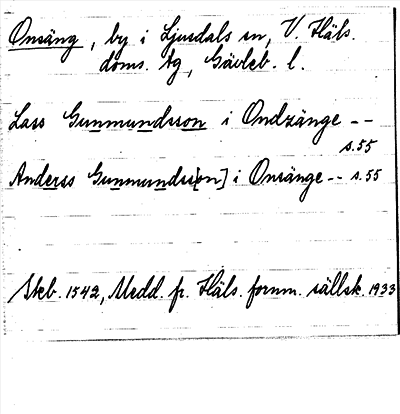 Onsäng, by i Ljusdals sn, V. Häls.
doms. tg, Gävleb. l.
Lass Gunmundsson i Ondzänge --
s. 55
Anderss Gunmundss[on] i Onsänge -- s. 55
Skb. 1542, Medd. fr. Häls. fornm. sällsk. 1933